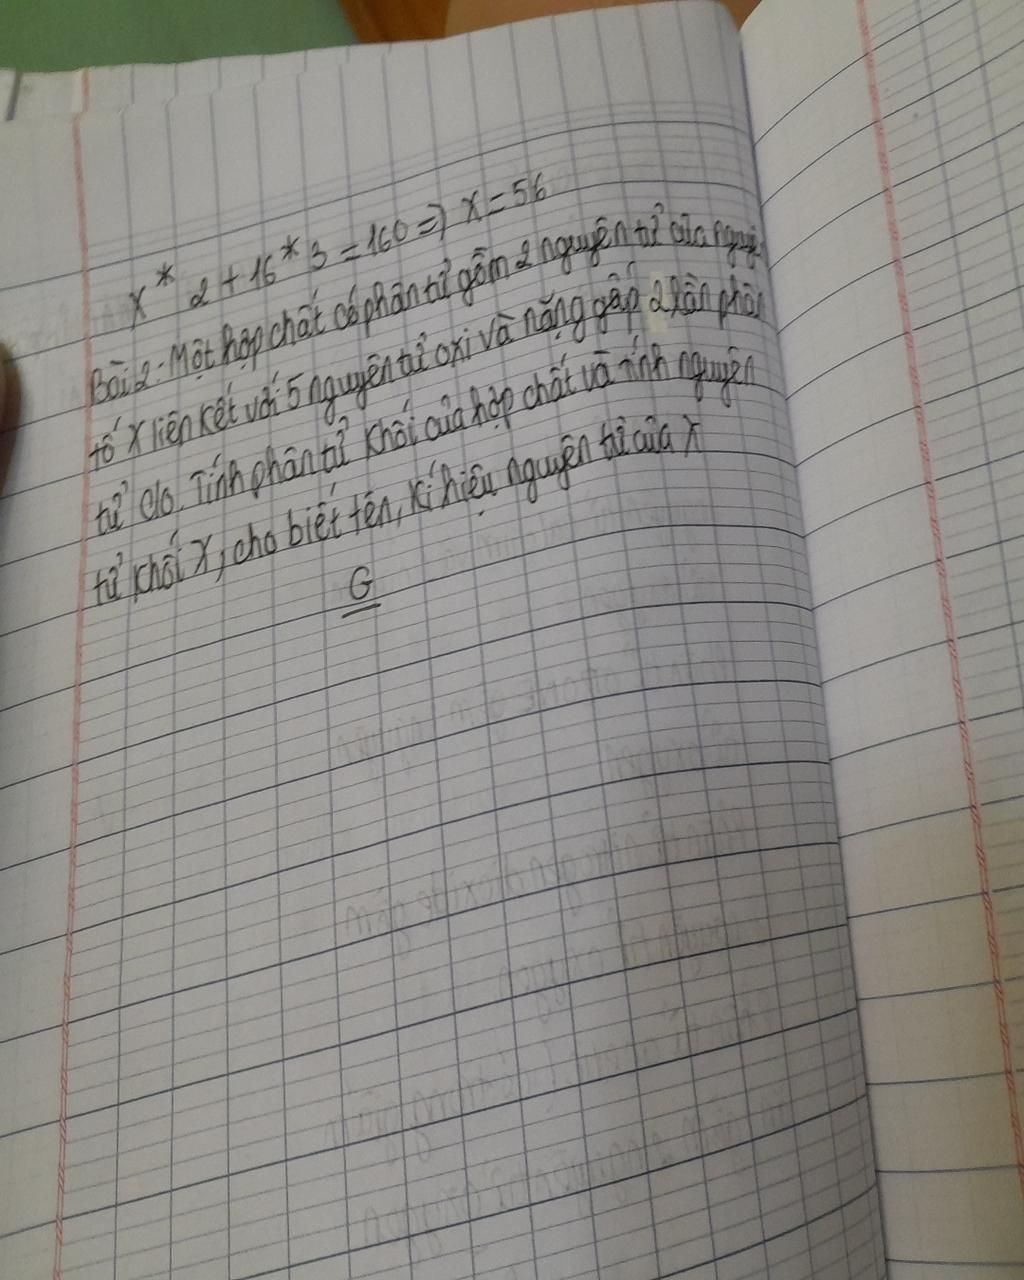 x * 2 + 16 * 3 = 160 => x = 56
Bài 2: Một hợp chất có phân tử gồm 2 nguyên tử của nguyê
tố X liên kết với 5 nguyên tử oxi và nặng gấp 2 lần phân
tử clo. Tính phân tử khối của hợp chất và tính nguyên
tử khối X, cho biết tên, kí hiệu nguyên tử của X
G